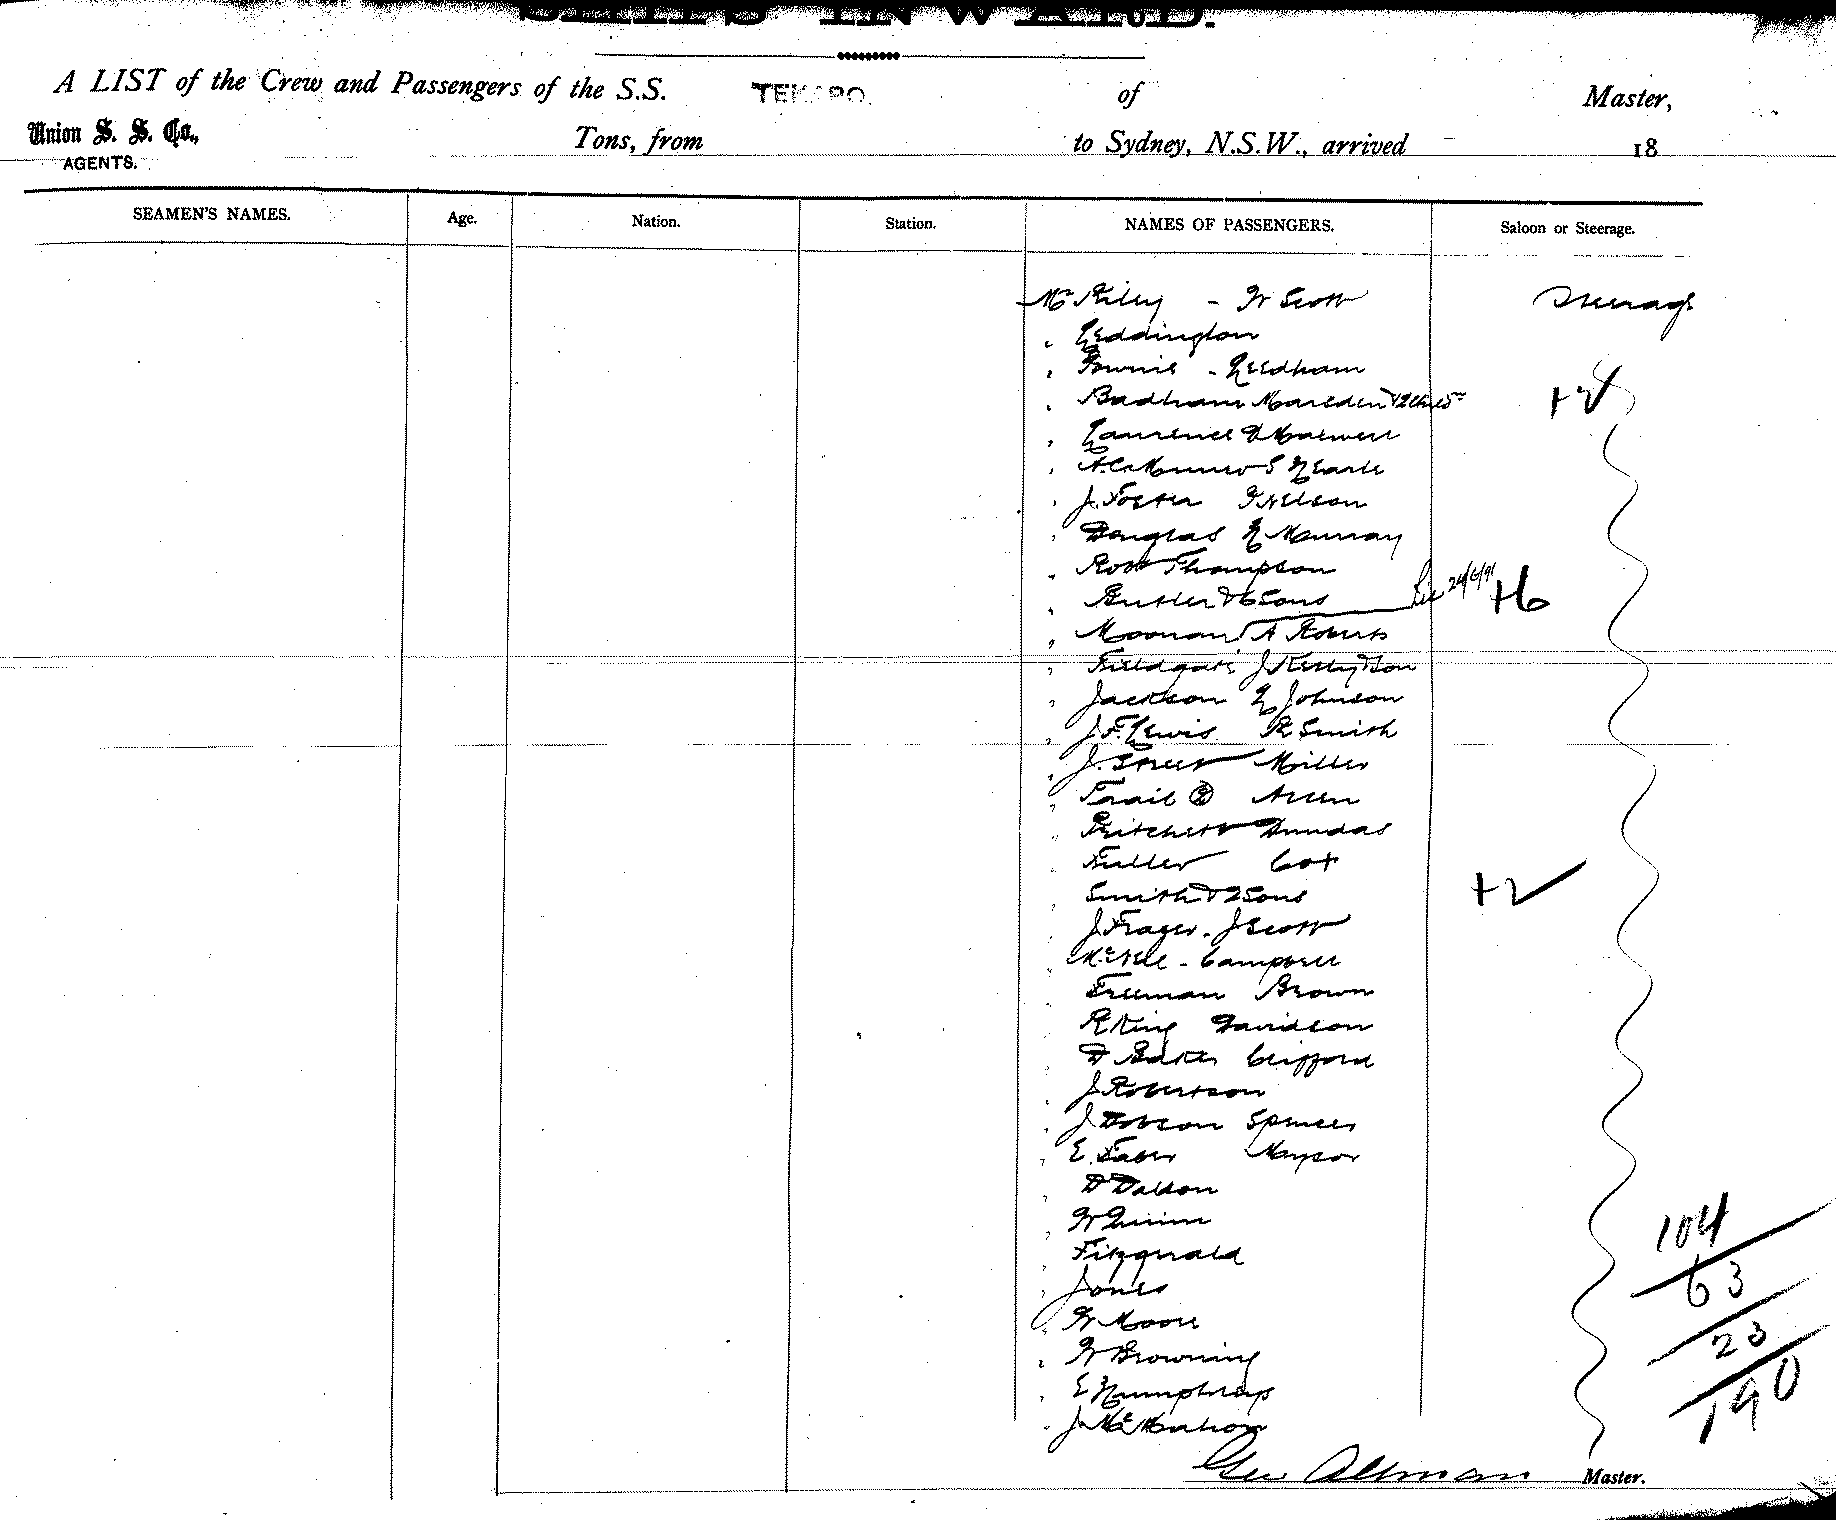 SHIPS INWARD.
A LIST of the Crew and Passengers of the S.S. TEKAPO. of Master,
Union S. S. Co., Tons, from to Sydney, N.S.W., arrived 18
AGENTS.
SEAMEN'S NAMES. Age. Nation. Station. NAMES OF PASSENGERS. Saloon or Steerage.
Mr Riley - W Scott Steerage
" Leddington
" Downie - Needham
" Badham Marsden & 2 Chldn +2
" Laurence & Maxwell
" A.C. Munro S Hearle
" J. Foster F Nelson
" Douglas H Murray
" Robt Thompson
" Butler & 6 Sons +6
" Moonan A Roberts
" Fieldgate J Kelly & Son
" Jackson H Johnson
" J. F. Lewis R Smith
" J. Street Miller
" Trail Allen
" Pritchett Dundas
" Fuller Cox
" Smith & 2 Sons +2
" J Frazer. J Scott
" McNeil - Campbell
" Freeman Brown
" R King Davidson
" D Baker Clifford
" J Robertson
" J Dobson Spencer
" E. Faber
" D Daldon
" W Quinn
" Fitzgerald
" Jones
" W Moore
" W Browning
" E Humphreys
" J McMahon
104
63
23
190
Geo Allman Master.